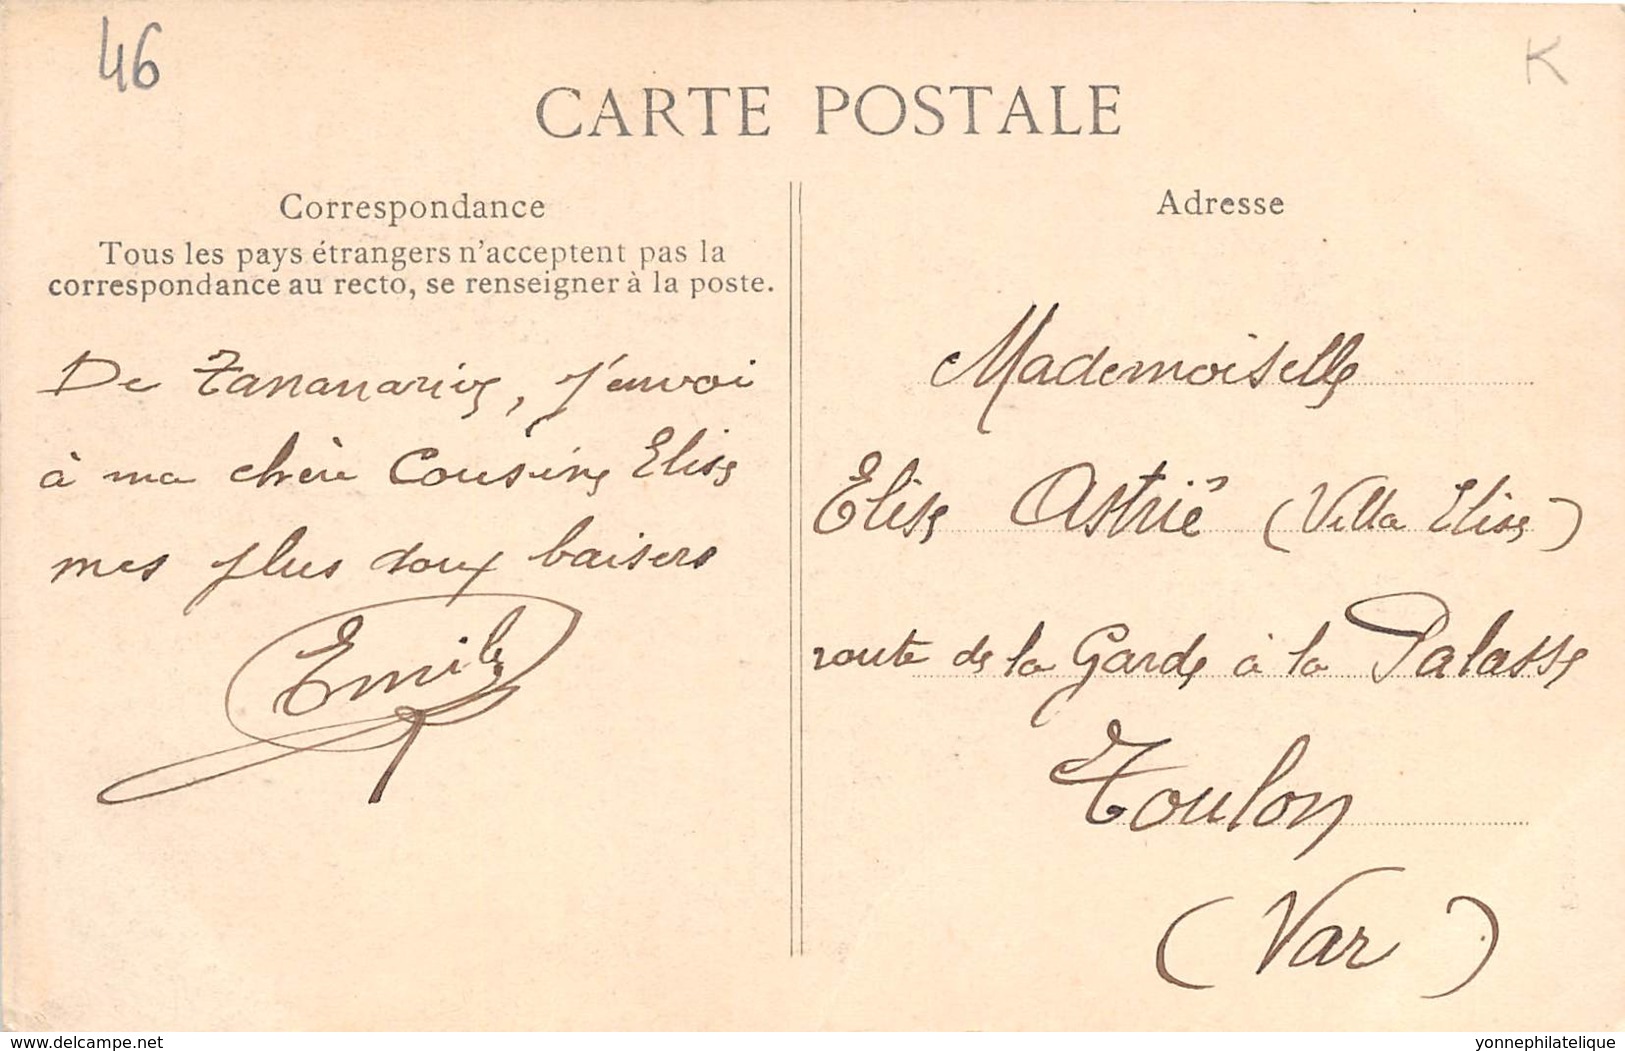 46
K
CARTE POSTALE
Correspondance
Tous les pays étrangers n'acceptent pas la
correspondance au recto, se renseigner à la poste.
De Tananarive, j'envoi
à ma chère Cousine Elise
mes plus doux baisers
Emile
Adresse
Mademoiselle
Elise Astrié (Villa Elise)
route de la Garde à la Palasse
Toulon
(Var)
delcampe.net
yonnephilatelique